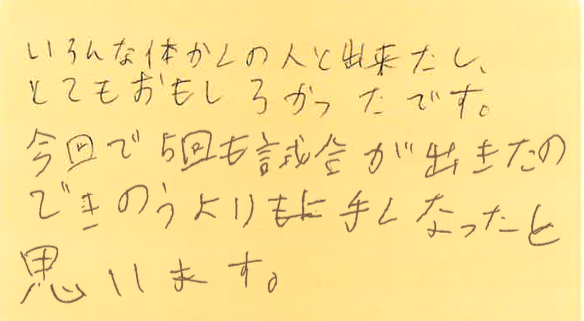 いろんな体かくの人と出来たし、
とてもおもしろかったです。
今回で5回も試会が出きたの
できのうよりも上手くなったと
思います。